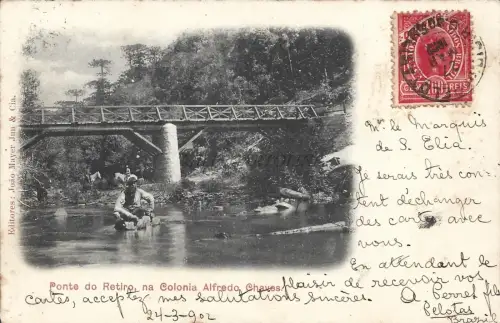 Editores: João Mayer Jun & Cia.
CEM RÉIS
Mr. le Marquis
de S. Elia.
Je serais très con-
tent d'échanger
des cartes avec
vous.
En attendant le
Ponte do Retiro, na Colonia Alfredo Chaves.
plaisir de recevoir vos
cartes, acceptez mes salutations sincères.
24-3-902
Pelotas
Brazil